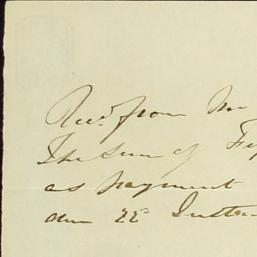 Recd. from Mr
The Sum of
as payment
due 22d